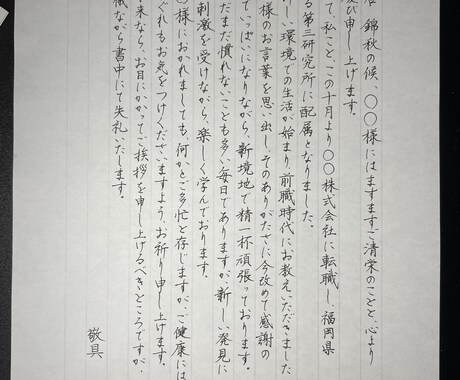 錦秋の候、〇〇様にはますますご清栄のことと、心より
び申し上げます。
て私こと、この十月より〇〇株式会社に転職し、福岡県
る第三研究所に配属となりました。
しい環境での生活が始まり、前職時代にお教えいただきました
様のお言葉を思い出し、そのありがたさに今改めて感謝の
でいっぱいになりながら、新境地で精一杯頑張っております。
だまだ慣れないことも多い毎日でありますが、新しい発見に
刺激を受けながら、楽しく学んでおります。
様におかれましても、何かとご多忙と存じますが、ご健康には
ぐれもお気をつけくださいますよう、お祈り申し上げます。
来なら、お目にかかってご挨拶を申し上げるべきところですが、
ながら書中にて失礼いたします。
敬具